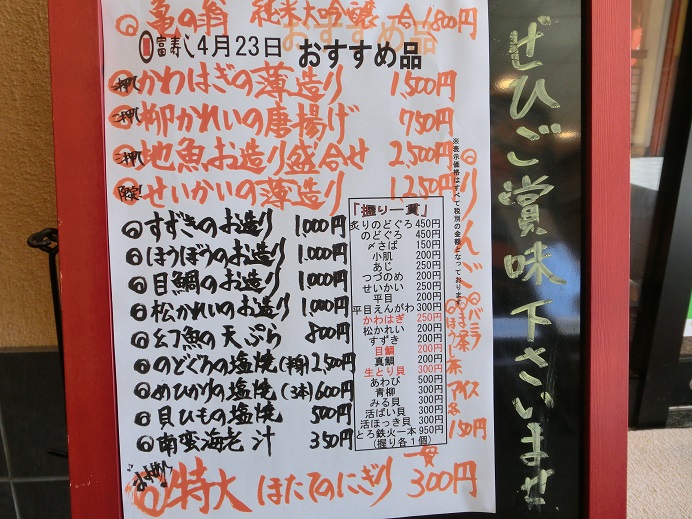 亀の翁 純米大吟醸 一合1,800円
富寿し 4月23日 おすすめ品
かわはぎの薄造り 1,500円
柳かれいの唐揚げ 750円
地魚お造り盛合せ 2,500円
限定! せいかいの薄造り 1,250円
すずきのお造り 1,000円
ほうぼうのお造り 1,000円
目鯛のお造り 1,000円
松かれいのお造り 1,000円
幻魚の天ぷら 800円
のどぐろの塩焼 2,500円
めひかりの塩焼(3本) 600円
貝ひもの塩焼 500円
南蛮海老汁 350円
特大 ほたてのにぎり 一貫 300円
「握り一貫」
炙りのどぐろ 450円
のどぐろ 450円
〆さば 150円
小肌 200円
あじ 250円
つづのめ 200円
せいかい 250円
平目 200円
平目えんがわ 300円
かわはぎ 250円
松かれい 200円
すずき 200円
目鯛 200円
真鯛 200円
生とり貝 300円
あわび 500円
青柳 300円
みる貝 300円
活ばい貝 300円
活ほっき貝 300円
とろ鉄火一本 950円
(握り各1個)
※表示価格はすべて税別の金額となっております
りんご
バニラ
ほうじ茶
アイス
各
150円
ぜひご賞味下さいませ